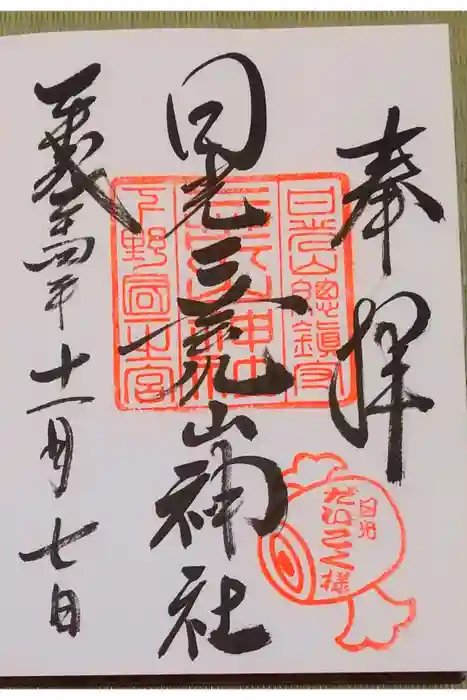 奉拝
日光二荒山神社
平成年十一月七日
日光山總鎮守
二荒山神社
下野國一之宮
日光
だいこく様